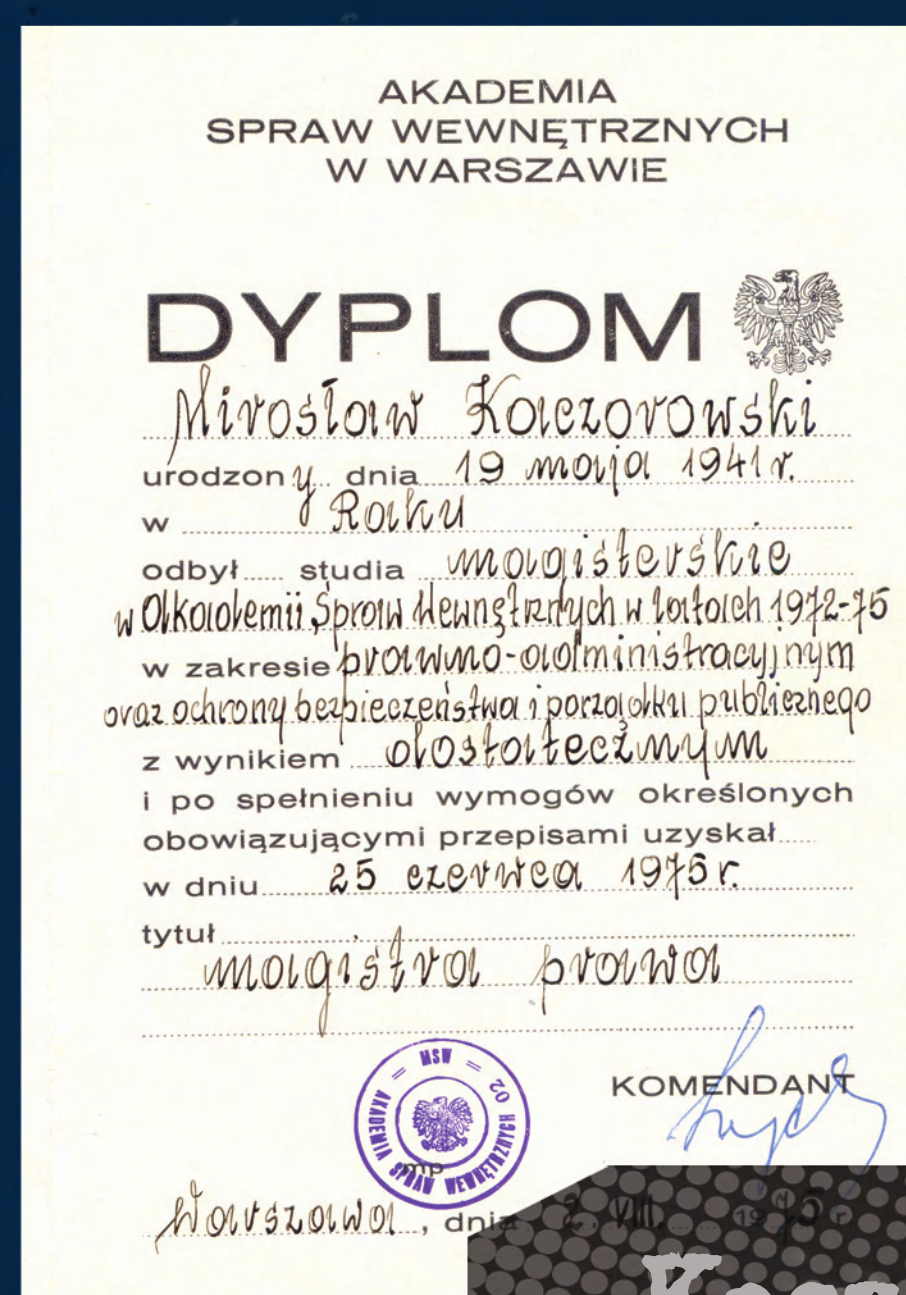 AKADEMIA
SPRAW WEWNĘTRZNYCH
W WARSZAWIE
DYPLOM
Mirosław Kaczorowski
urodzony dnia 19 maja 1941 r.
w Raku
odbył studia magisterskie
w Akademii Spraw Wewnętrznych w latach 1972-75
w zakresie prawno-administracyjnym
oraz ochrony bezpieczeństwa i porządku publicznego
z wynikiem dostatecznym
i po spełnieniu wymogów określonych
obowiązującymi przepisami uzyskał
w dniu 25 czerwca 1975 r.
tytuł
magistra prawa
KOMENDANT
MSW
AKADEMIA SPRAW WEWNĘTRZNYCH 02
mp
Warszawa, dnia 2. VIII. 1975 r